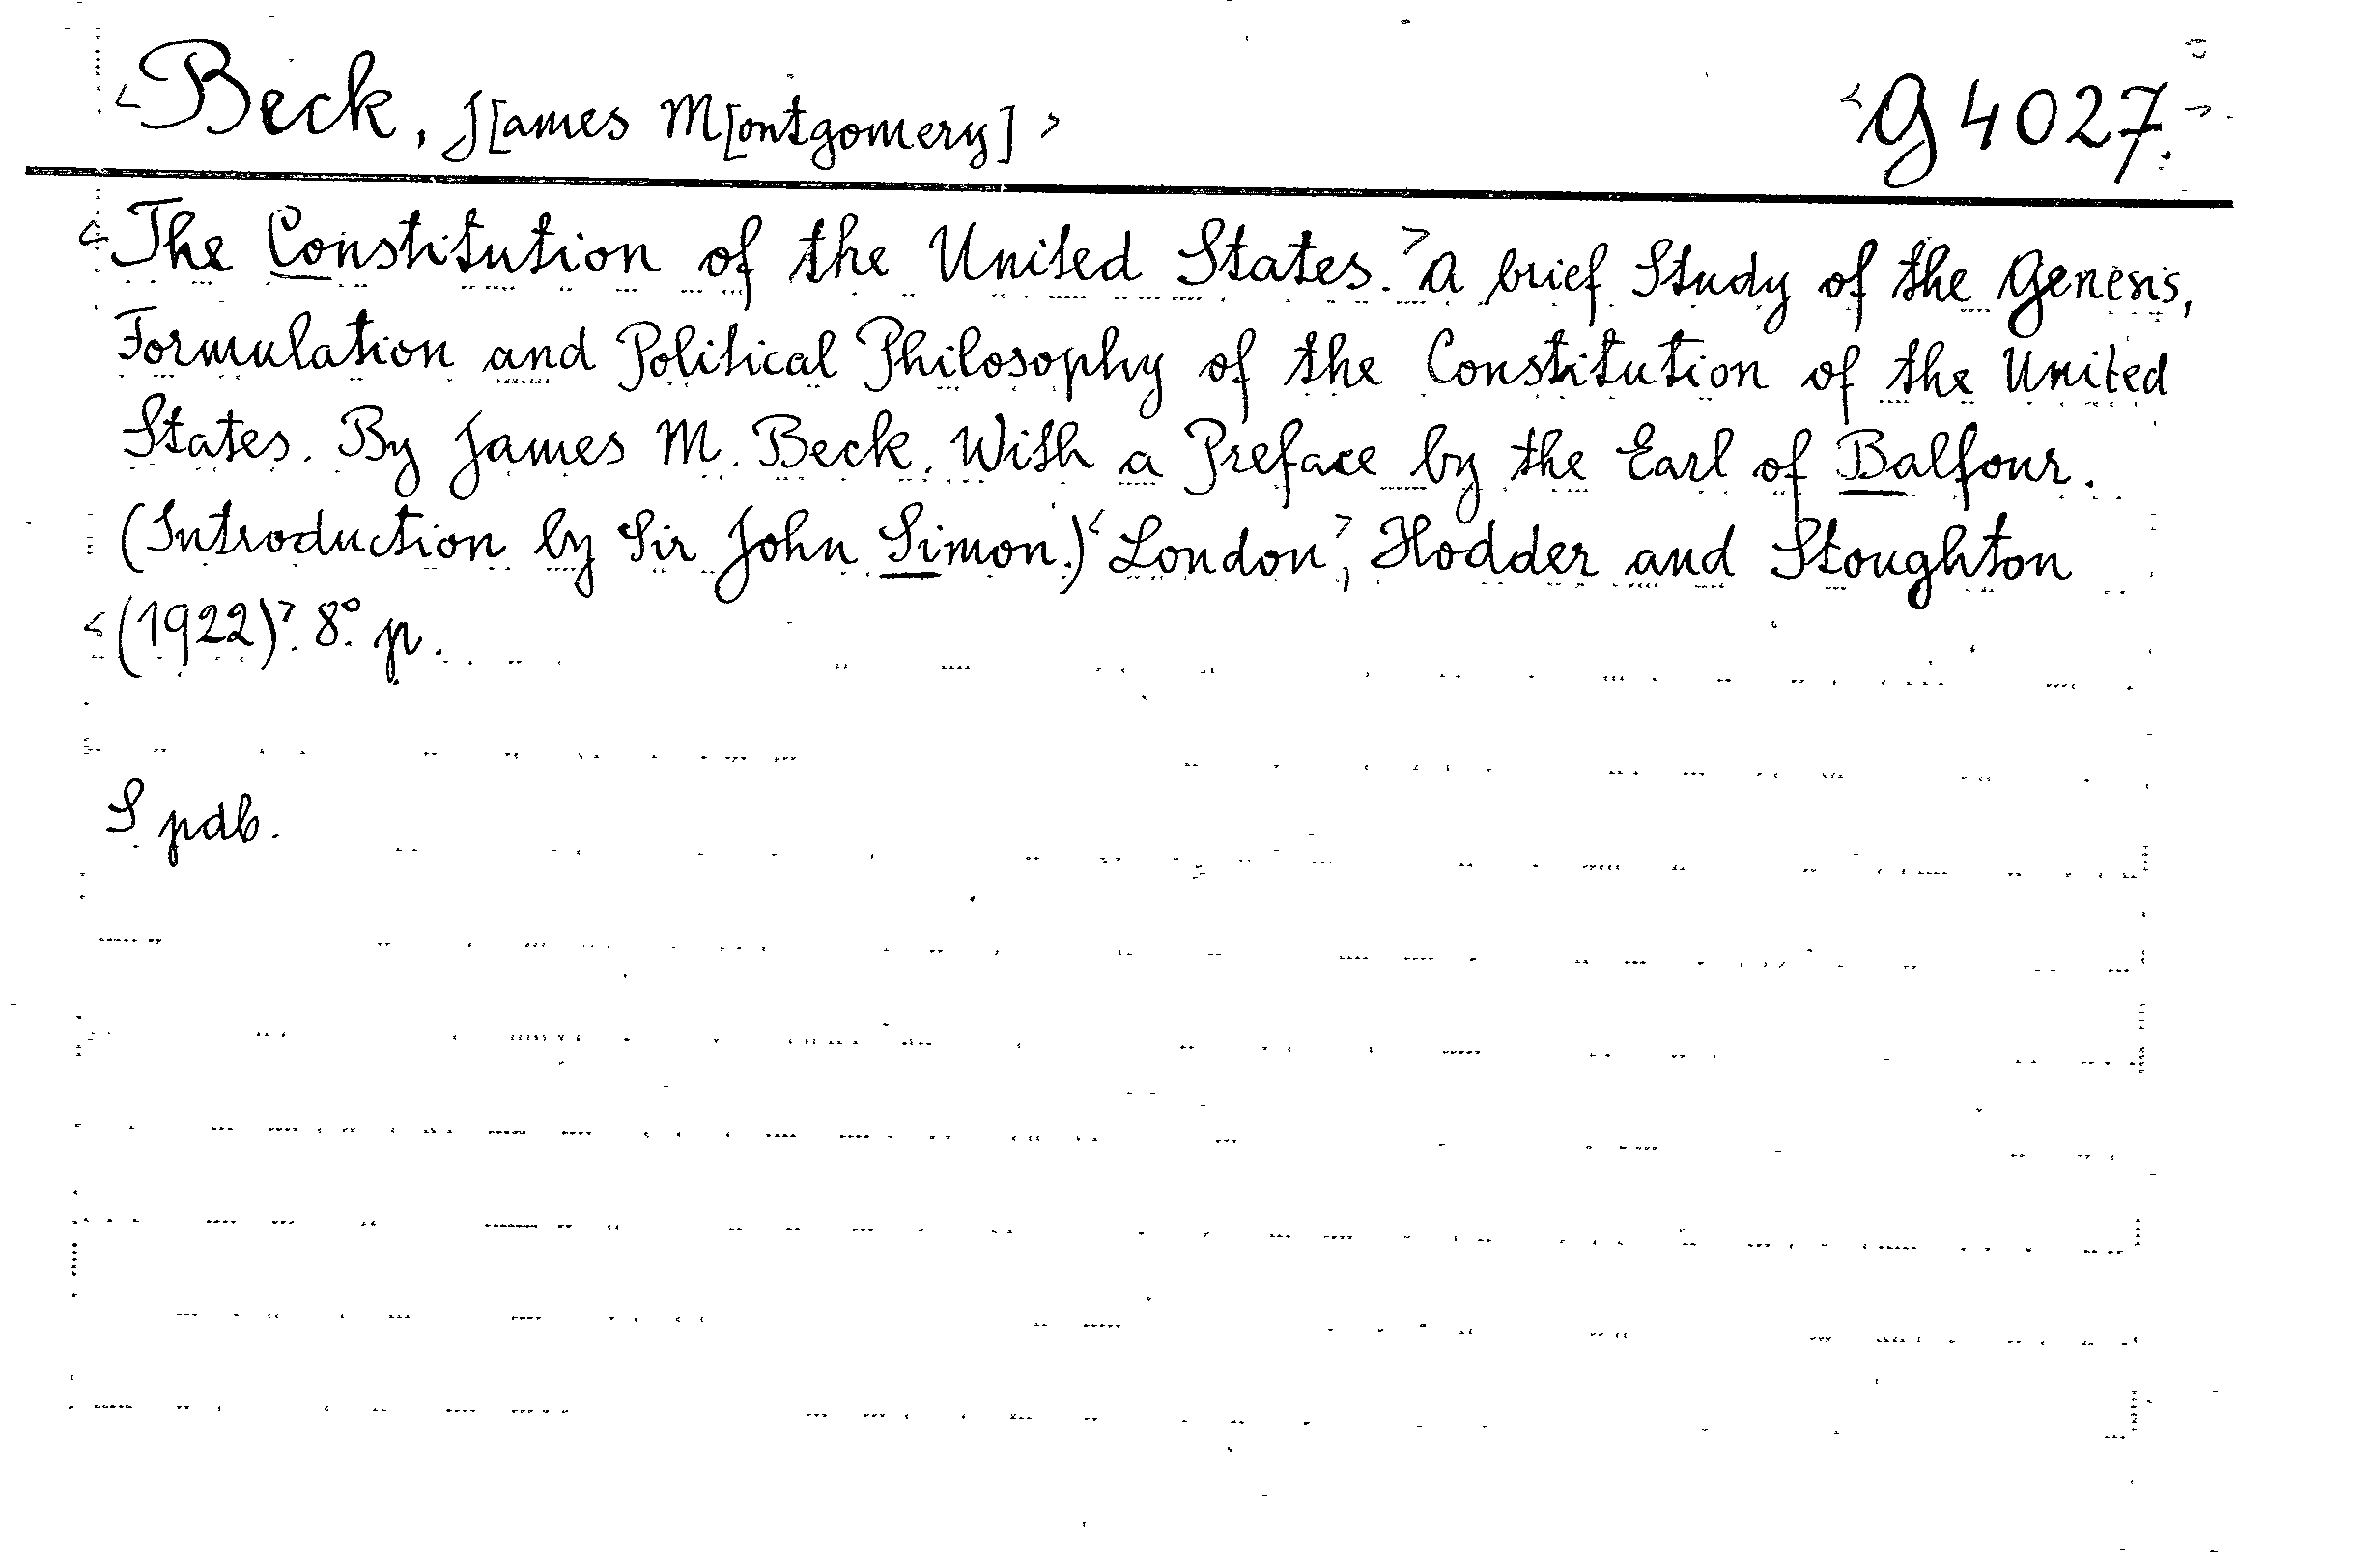 <Beck, J[ames M[ontgomery]> <G 4027.>
<The Constitution of the United States.> A brief Study of the Genesis,
Formulation and Political Philosophy of the Constitution of the United
States. By James M. Beck. With a Preface by the Earl of Balfour.
(Introduction by Sir John Simon.) <London>, Hodder and Stoughton
<(1922)>. 8°. p.
S pdb.